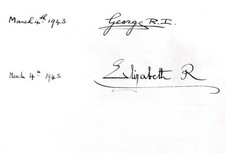 March 4th 1943 George R.I.
March 4th 1943 Elizabeth R